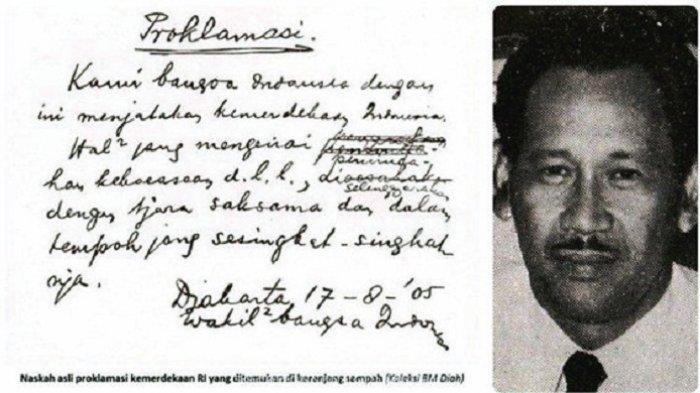 Proklamasi.
Kami bangsa Indonesia dengan
ini menjatakan kemerdekaan Indonesia.
Hal² jang mengenai
peminda-
han kekoeasaan d.l.l.,
diselenggarakan
dengan tjara saksama dan dalam
tempoh jang sesingkat-singkat
nja.
Djakarta, 17-8-'05
Wakil² bangsa Indonesia
Naskah asli proklamasi kemerdekaan RI yang ditemukan di keranjang sampah (Koleksi BM Diah)